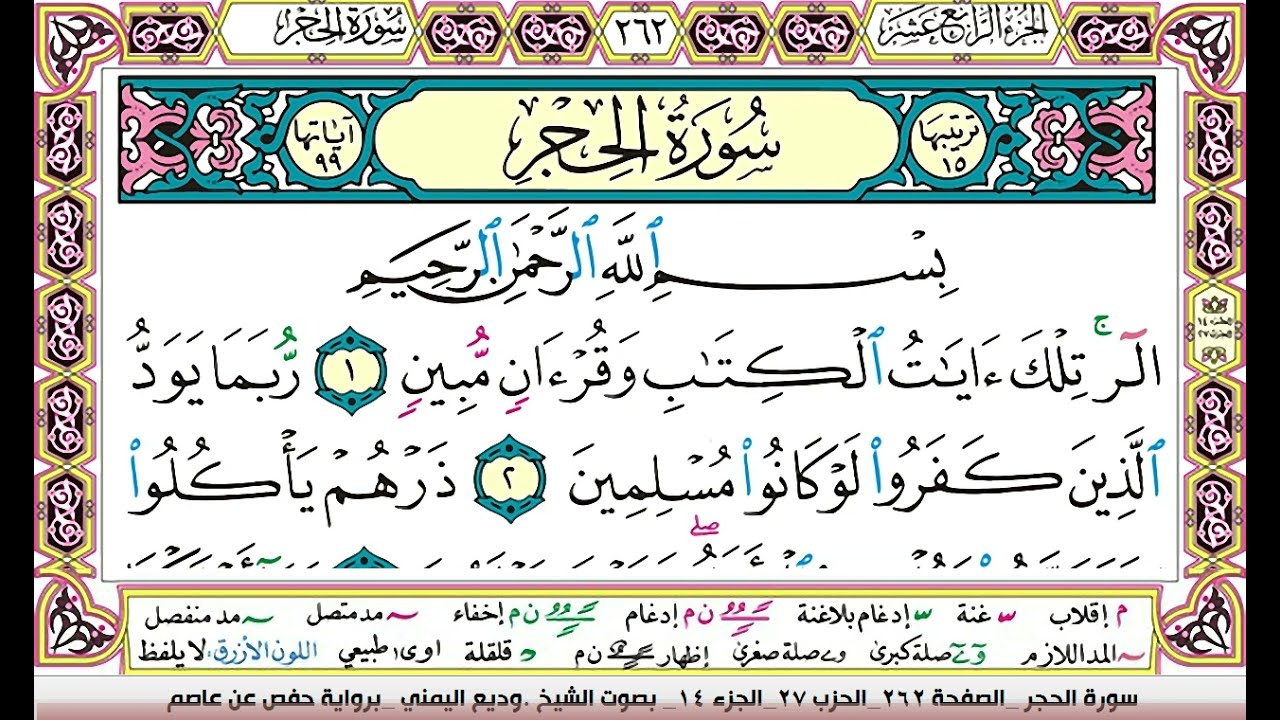 الجزء الرابع عشر ٢٦٢ سورة الحجر
ترتيبها ١٥ سُورَةُ الحِجْرِ آياتها ٩٩
بِسْمِ ٱللَّهِ ٱلرَّحْمَٰنِ ٱلرَّحِيمِ
الٓرۚ تِلْكَ ءَايَٰتُ ٱلْكِتَٰبِ وَقُرْءَانٍ مُّبِينٍ ١ رُّبَمَا يَوَدُّ
ٱلَّذِينَ كَفَرُواْ لَوْ كَانُواْ مُسْلِمِينَ ٢ ذَرْهُمْ يَأْكُلُواْ
الجزء ١٤
الحزب ٢٧
م إقلاب غنة إدغام بلاغنة ن م إدغام ن م إخفاء مد متصل مد منفصل
المد اللازم صلة كبرى صلة صغرى إظهار ن م قلقلة اوى طبيعي اللون الأزرق: لا يلفظ
سورة الحجر _الصفحة ٢٦٢_الحزب ٢٧_الجزء ١٤_ بصوت الشيخ .وديع اليمني _برواية حفص عن عاصم